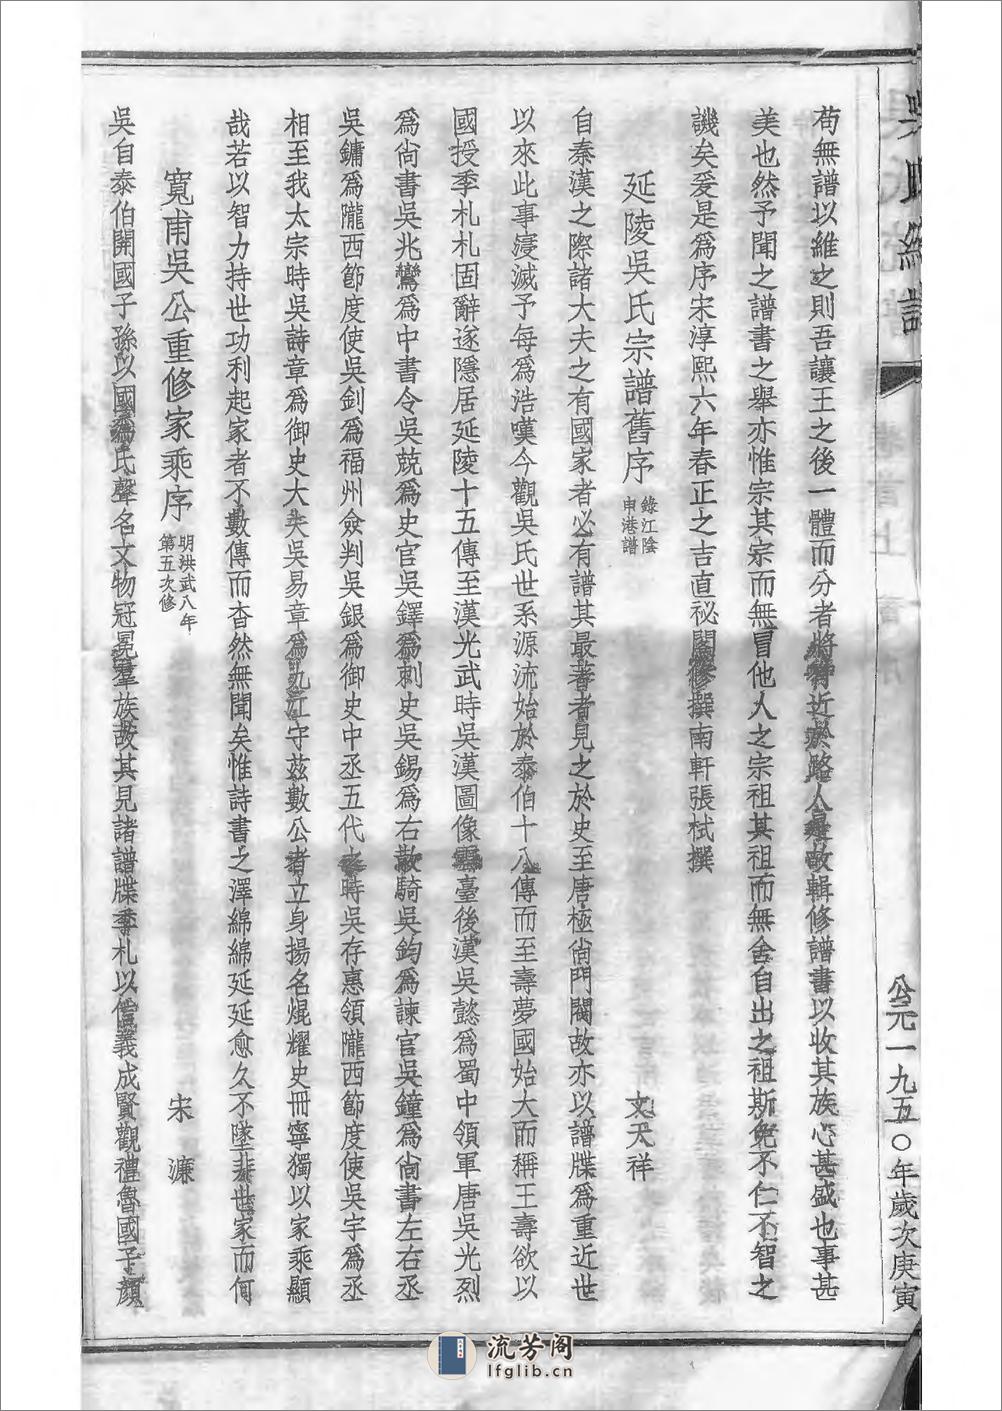 吳氏統譜
公元一九五〇年歲次庚寅
苟無譜以維之則吾讓王之後一體而分者將有近於路人是故輯修譜書以收其族心甚盛也事甚
美也然予聞之譜書之舉亦惟宗其宗而無冒他人之宗祖其祖而無舍自出之祖斯免不仁不智之
譏矣爰是為序宋淳熙六年春正之吉直祕閣修撰南軒張栻撰
延陵吳氏宗譜舊序 錄江陰申港譜 文天祥
自秦漢之際諸大夫之有國家者必有譜其最著者見之於史至唐極尚門閥故亦以譜牒為重近世
以來此事寖滅予每為浩嘆今觀吳氏世系源流始於泰伯十八傳而至壽夢國始大而稱王壽欲以
國授季札札固辭遂隱居延陵十五傳至漢光武時吳漢圖像雲臺後漢吳懿為蜀中領軍唐吳光烈
為尚書吳兆鸞為中書令吳兢為史官吳鐸為刺史吳錫為右散騎吳鈞為諫官吳鐘為尚書左右丞
吳鏞為隴西節度使吳釗為福州僉判吳銀為御史中丞五代之時吳存惠領隴西節度使吳宇為丞
相至我太宗時吳詩章為御史大夫吳易章為九江守茲數公者立身揚名焜耀史冊寧獨以家乘顯
哉若以智力持世功利起家者不數傳而杳然無聞矣惟詩書之澤綿綿延延愈久不墜悲世家而何
寬甫吳公重修家乘序 明洪武八年第五次修 宋濂
吳自泰伯開國子孫以國為氏聲名文物冠冕羣族故其見諸譜牒季札以信義成賢觀禮魯國子顏
流芳阁
lfglib.cn